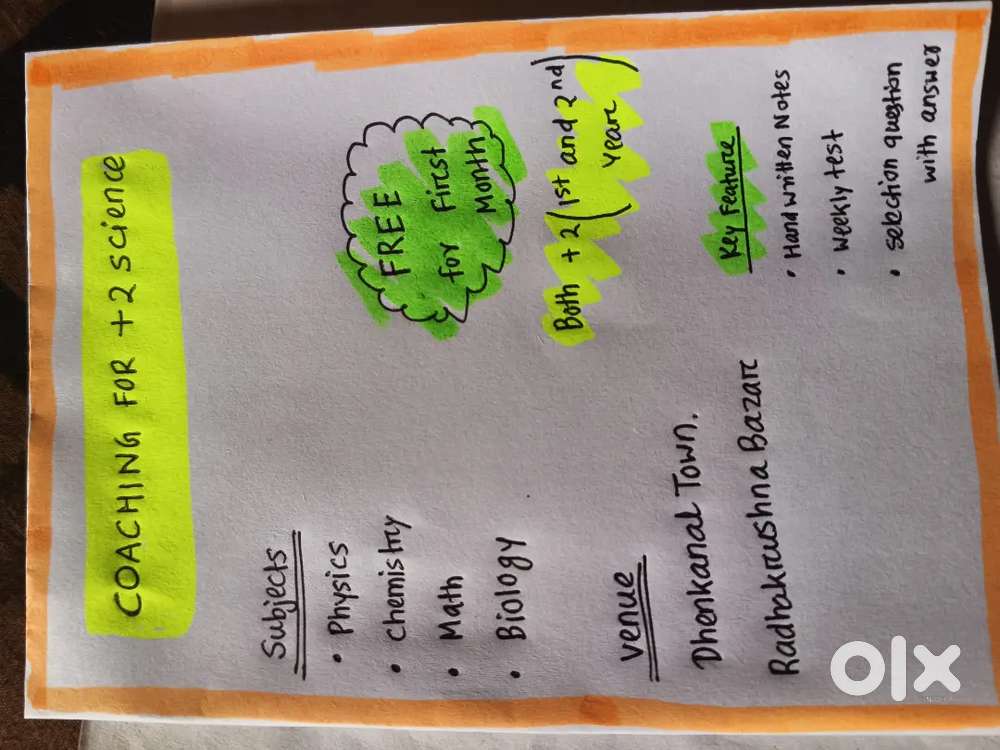 COACHING FOR +2 science
Subjects
• Physics
• Chemistry
• Math
• Biology
FREE
for First
Month
Both +2 (1st and 2nd)
Year
Venue
Dhenkanal Town.
Radhakrushna Bazar
Key Feature
• Hand written Notes
• Weekly test
• selection question
with answer
olx